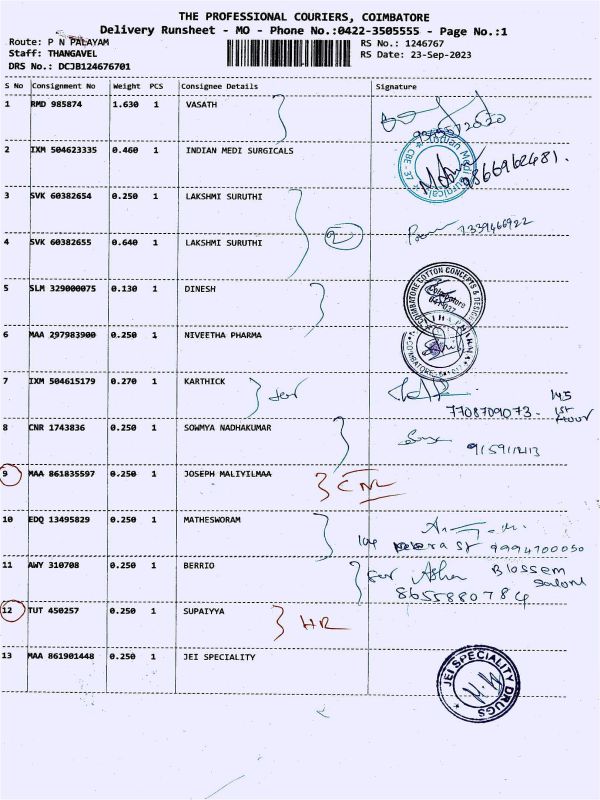 THE PROFESSIONAL COURIERS, COIMBATORE
Delivery Runsheet - MO - Phone No.:0422-3505555 - Page No.:1
Route: P N PALAYAM
Staff: THANGAVEL
DRS No.: DCJB124676701
RS No.: 1246767
RS Date: 23-Sep-2023
S No Consignment No Weight PCS Consignee Details Signature
1 RMD 985874 1.630 1 VASATH
2 IXM 504623335 0.460 1 INDIAN MEDI SURGICALS 9866962481.
3 SVK 60382654 0.250 1 LAKSHMI SURUTHI
2
7339466922
4 SVK 60382655 0.640 1 LAKSHMI SURUTHI
5 SLM 329000075 0.130 1 DINESH
COIMBATORE COTTON CONCEPTS & DESIGN
Coimbatore
641 037
6 MAA 297983900 0.250 1 NIVEETHA PHARMA
7 IXM 504615179 0.270 1 KARTHICK
7708709073. 145
1st
floor
8 CNR 1743836 0.250 1 SOWMYA NADHAKUMAR
9 MAA 861835597 0.250 1 JOSEPH MALIYILMAA
CNL
10 EDQ 13495829 0.250 1 MATHESWORAM
9994700050
11 AWY 310708 0.250 1 BERRIO
for Asha Blossem
Saloni
8655880784
12 TUT 450257 0.250 1 SUPAIYYA HR
13 MAA 861901448 0.250 1 JEI SPECIALITY
JEI SPECIALITY DRUGS